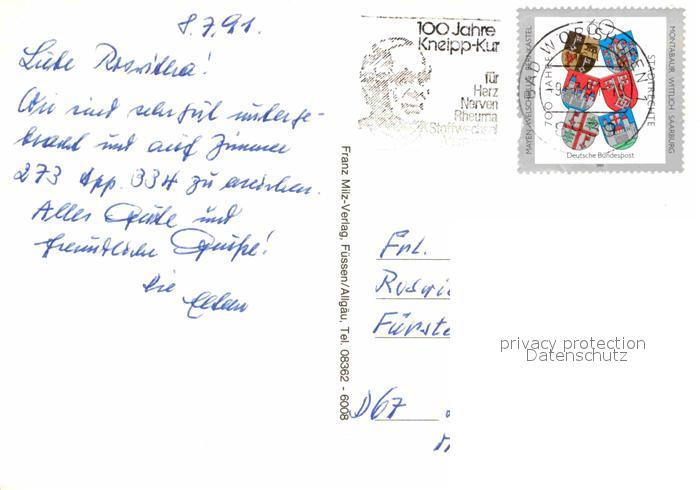 8.7.91.
Liebe Roswitha!
Wir sind sehr gut unterge-
bracht und auf Zimmer
273 App. 334 zu erreichen.
Alles Gute und
freundliche Grüße!
Die Eltern
100 Jahre
Kneipp-Kur
für
Herz
Nerven
Rheuma
Stoffwechsel
BAD WÖRISHOFEN
MAYEN·WELSCHBILLIG·BERNKASTEL
MONTABAUR·WITTLICH·SAARBURG
700 JAHRE
STADTRECHTE
Deutsche Bundespost
Franz Milz-Verlag, Füssen/Allgäu, Tel. 08362 - 6008
Frl.
Roswi
Fürste
D67
privacy protection
Datenschutz